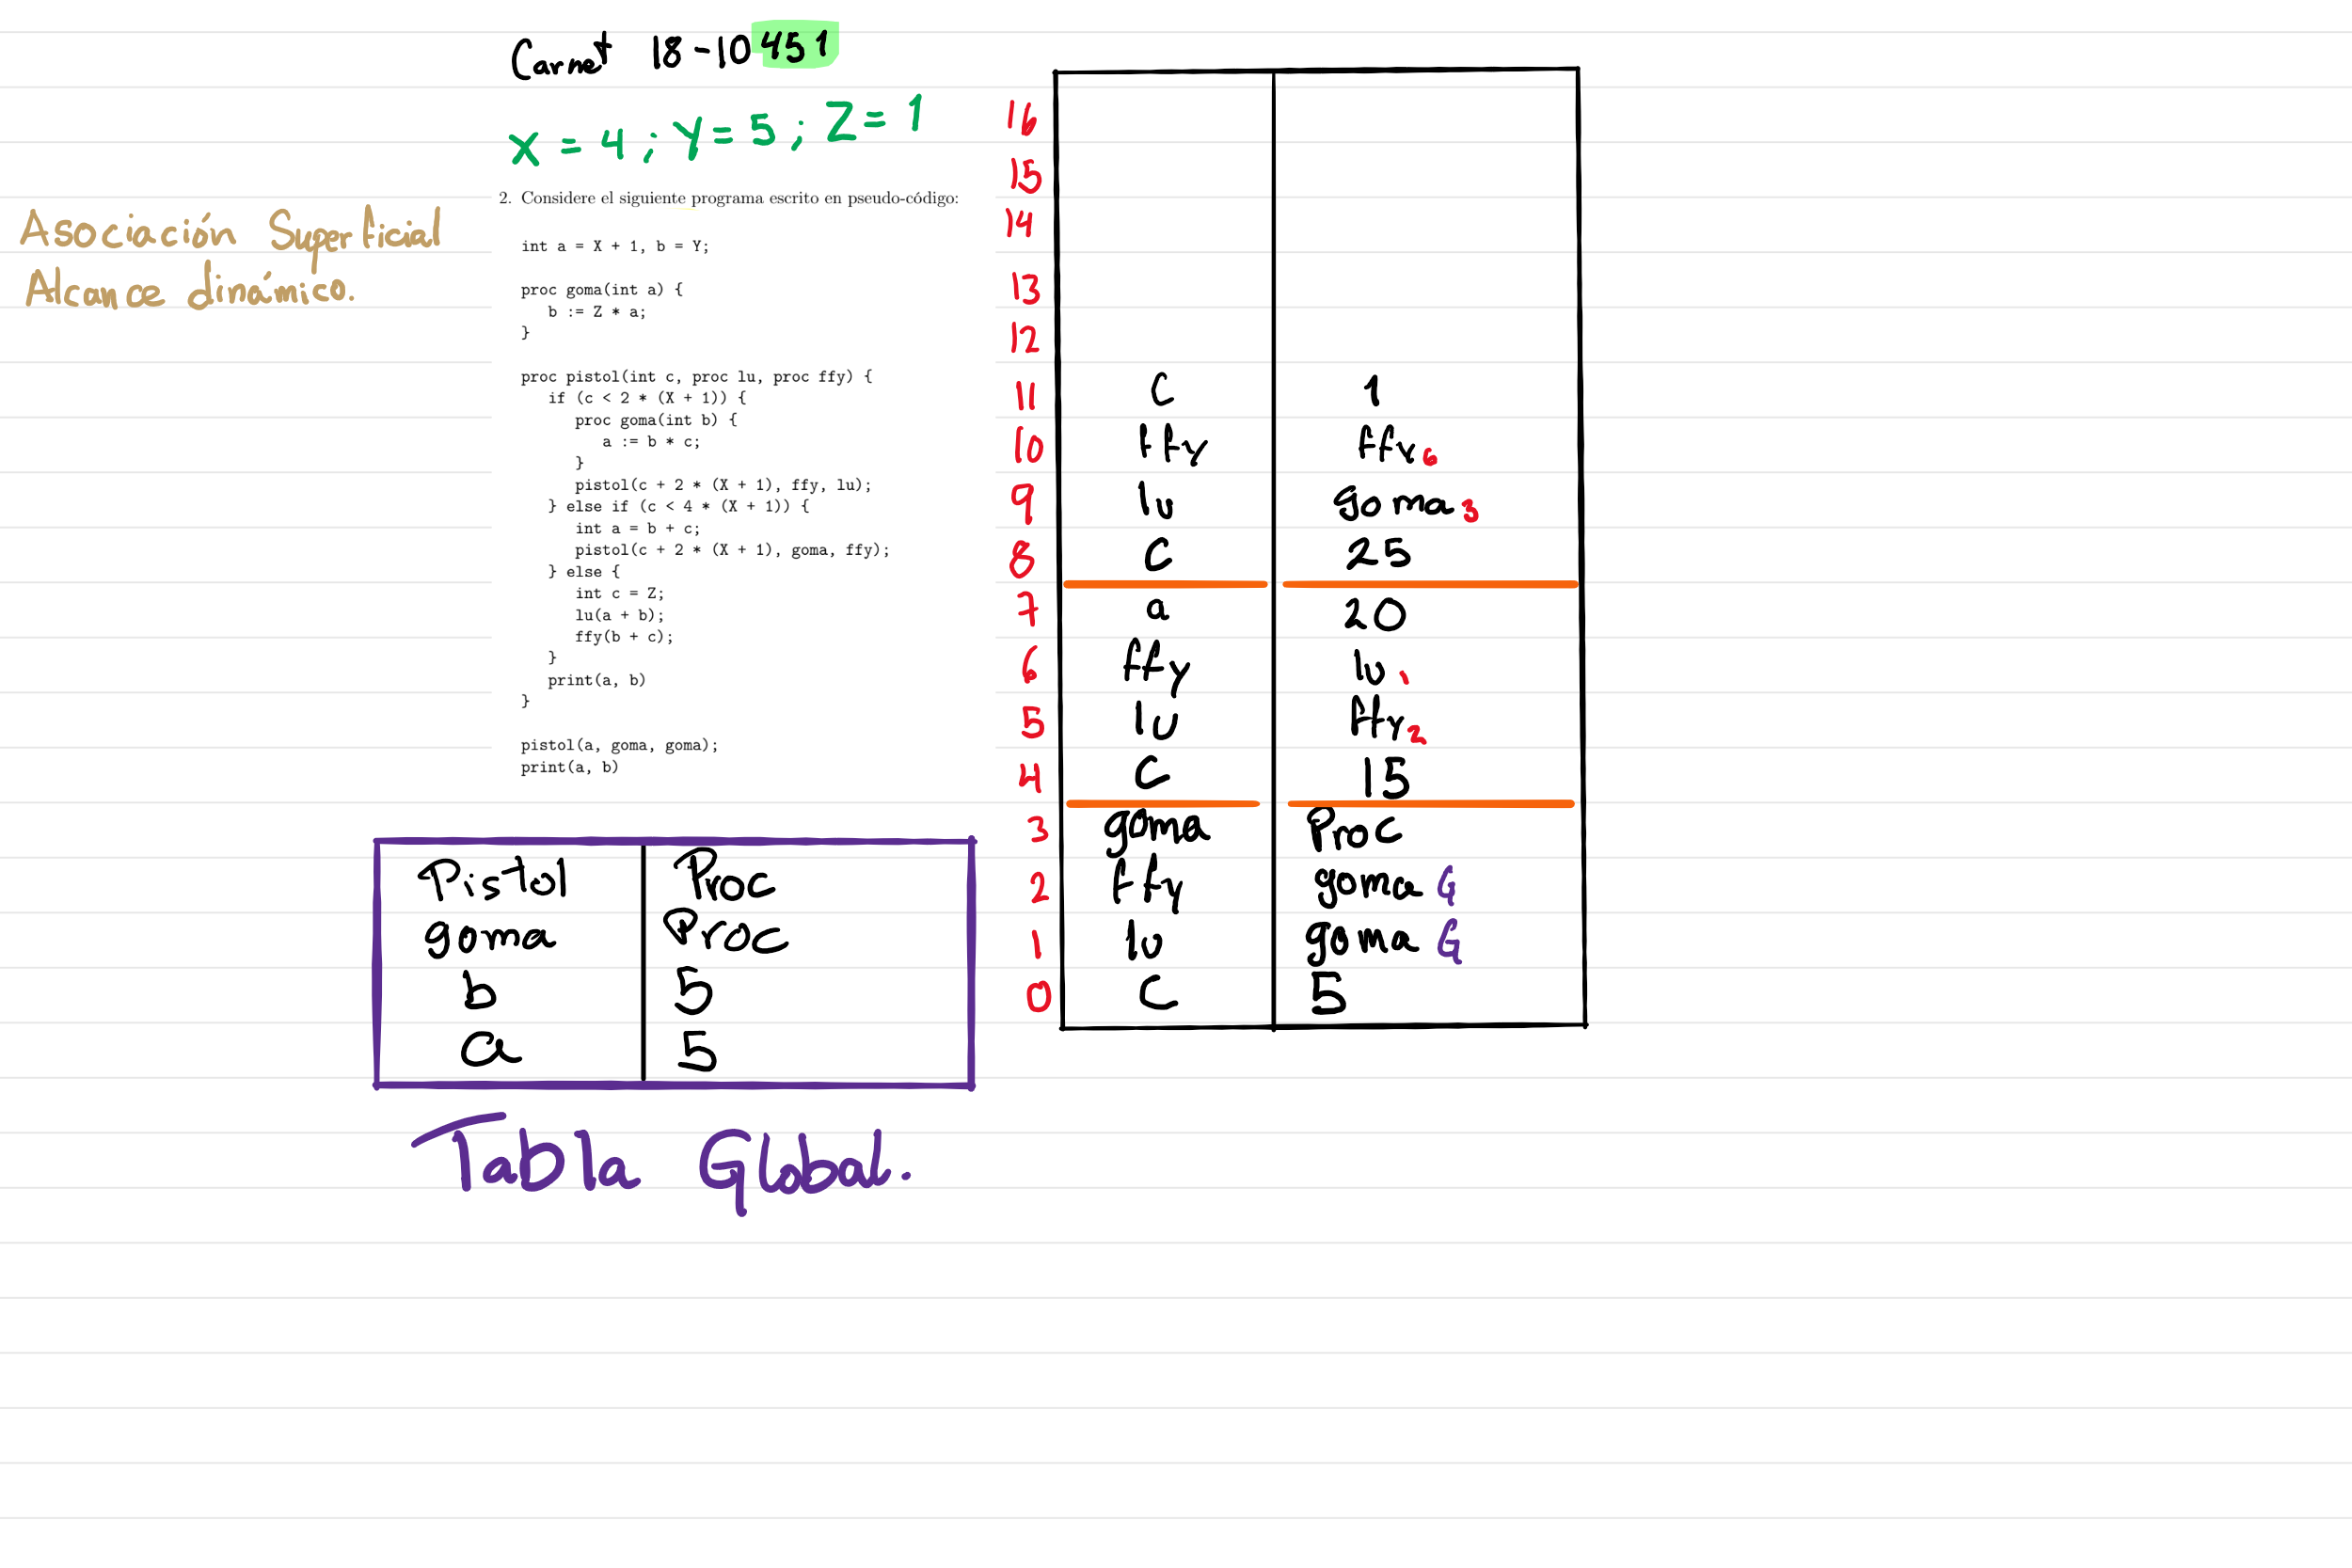 Carnet 18-10451
X = 4 ; Y = 5 ; Z = 1
Asociación Superficial
Alcance dinámico.
2. Considere el siguiente programa escrito en pseudo-código:
int a = X + 1, b = Y;
proc goma(int a) {
b := Z * a;
}
proc pistol(int c, proc lu, proc ffy) {
if (c < 2 * (X + 1)) {
proc goma(int b) {
a := b * c;
}
pistol(c + 2 * (X + 1), ffy, lu);
} else if (c < 4 * (X + 1)) {
int a = b + c;
pistol(c + 2 * (X + 1), goma, ffy);
} else {
int c = Z;
lu(a + b);
ffy(b + c);
}
print(a, b)
}
pistol(a, goma, goma);
print(a, b)
Pistol Proc
goma Proc
b 5
a 5
Tabla Global.
16
15
14
13
12
11 C 1
10 ffy ffy6
9 lu goma3
8 C 25
7 a 20
6 ffy lu1
5 lu ffy2
4 C 15
3 goma Proc
2 ffy goma G
1 lu goma G
0 C 5